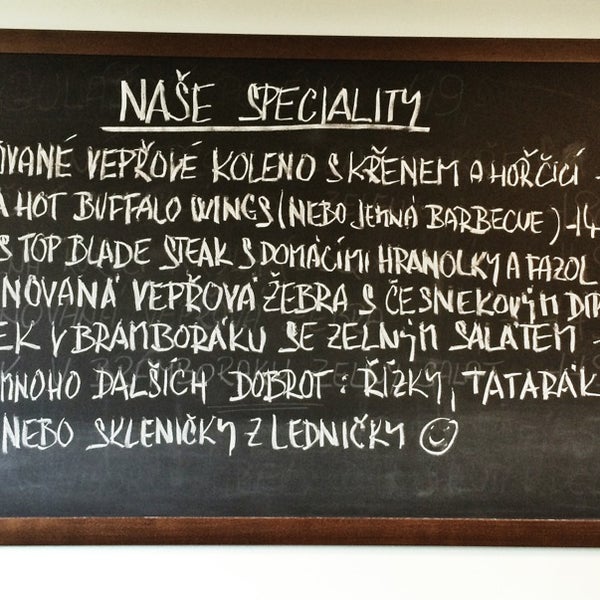 NAŠE SPECIALITY
OVANÉ VEPŘOVÉ KOLENO S KŘENEM A HOŘČICÍ -
A HOT BUFFALO WINGS (NEBO JEMNÁ BARBECUE) -14
S TOP BLADE STEAK S DOMÁCÍMI HRANOLKY A FAZOL
NOVANÁ VEPŘOVÁ ŽEBRA S ČESNEKOVÝM DIP
EK V BRAMBORÁKU SE ZELNÝM SALÁTEM -
MNOHO DALŠÍCH DOBROT: ŘÍZKY, TATARÁK
NEBO SKLENIČKY Z LEDNIČKY ☺